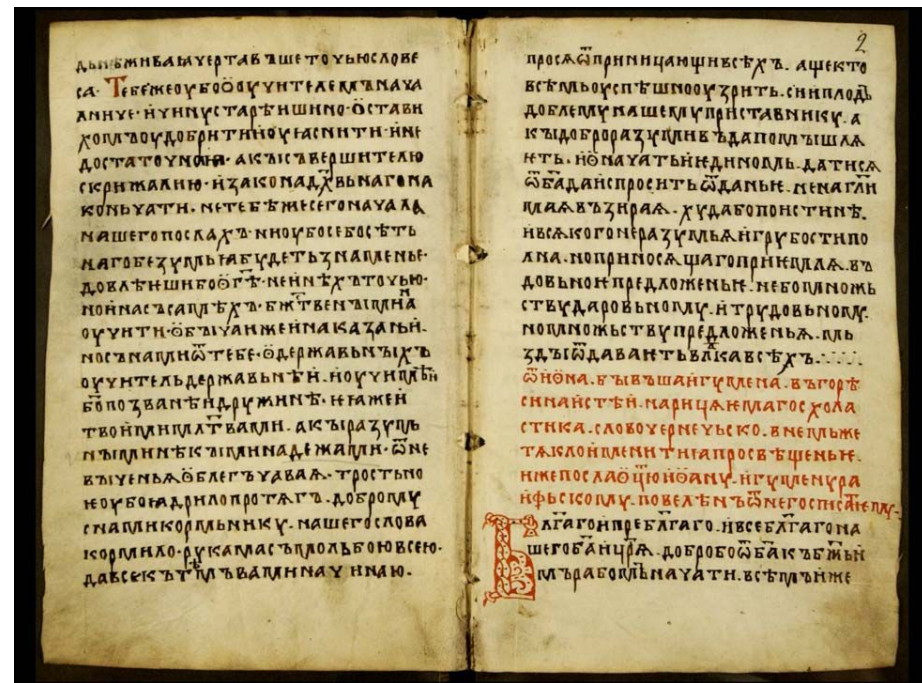 дьнѣживаꙗчертавъшеточьюслове
са· Тебежеоубоѻоучителемънача
лниче· ичинустарѣишино· ѻстави
хомъоудобритиноуꙗснити· ине
достаточнаꙗ· акысъвершителю
скрижалию· изаконадх҃вьнагона
коньчати· нетебѣжесегоначала
нашегопослахъ· ниоубосебосѣть
нагобезумьꙗбудетьзнаменье·
довлѣшибоѻгѣ· неинѣхъточью·
ноинасъсамѣхъ· бж҃твенъимина
оучити· ѻбычаижеинаказаньи·
носънамиѿтебе· ѻдержавьныхъ
оучительдержавьнѣи· иоучимѣи
б҃опозванѣидружинѣ· иꙗжеи
твоимимл҃твами· акыразумь
ныминѣкыминадежами· ѿне
выученьꙗѻблегъчаваꙗ· тростьно
ѥоубоꙗдрилопротѧгъ· доброму
снамикормьнику· нашегослова
кормило· рукамасъмольбоювсею·
давсекътѣмъваминачинаю·
2
просѧѿприницающивсѣхъ· ащекто
всѣмьоуспѣшноузрить· сииплодъ
доблемунашемуприставнику· а
кыдоброразумивъдапомышлѧ
ѥть· иѻначатьиѥдиномь· датисѧ
ѿб҃адаиспроситьѿданьѥ· ненагли
маꙗвъзираꙗ· худабопоистинѣ·
ивсѧкогонеразумьꙗигрубостипо
лна· ноприносѧщагоприѥмлꙗ· въ
довьноѥпредложеньѥ· небомножь
ствударовьному· итрудовьному·
номножьствупредложеньꙗ· мь
здыѿдаваѥтьвл҃кавсѣхъ·
ѿиѻна· бывъшаигумена· въгорѣ
синаистѣи· нарицаѥмагосхола
стика· словочернечьско· внемьже
тѧклоименитиꙗпросвѣщеньѥ·
ижепослаѻц҃юиѻану· игуменура
ифьскому· повелѣнъѿнегосписатиѥму·
Бл҃гагоипребл҃гаго· ивсебл҃гагона
шегоб҃аиц҃рѧ· добробоѿб҃акъбж҃ьи
мърабомьначати· всѣмъиже